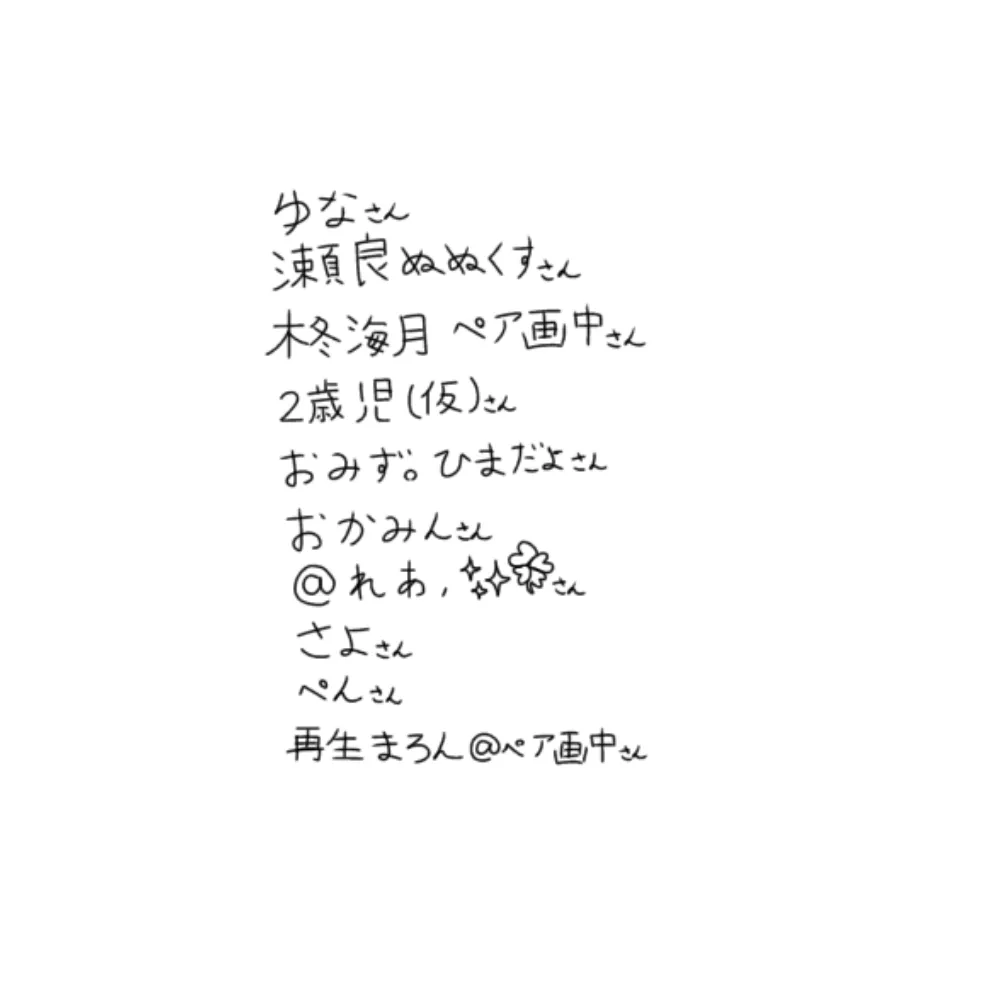 ゆなさん
瀬良ぬぬくすさん
柊海月 ペア画中さん
2歳児(仮)さん
おみず。ひまだよさん
おかみんさん
@れあ,✨🍀さん
さよさん
ぺんさん
再生まろん@ペア画中さん